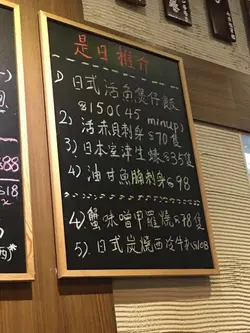 是日推介
1) 日式活魚煲仔飯
$150 (45 minup)
2) 活赤貝刺身 $70隻
3) 日本室津生蠔 $35隻
4) 油甘魚腩刺身 $98
4) 蟹味噌甲羅燒 $78隻
5). 日式炭燒西冷牛扒 $108
$88
$18